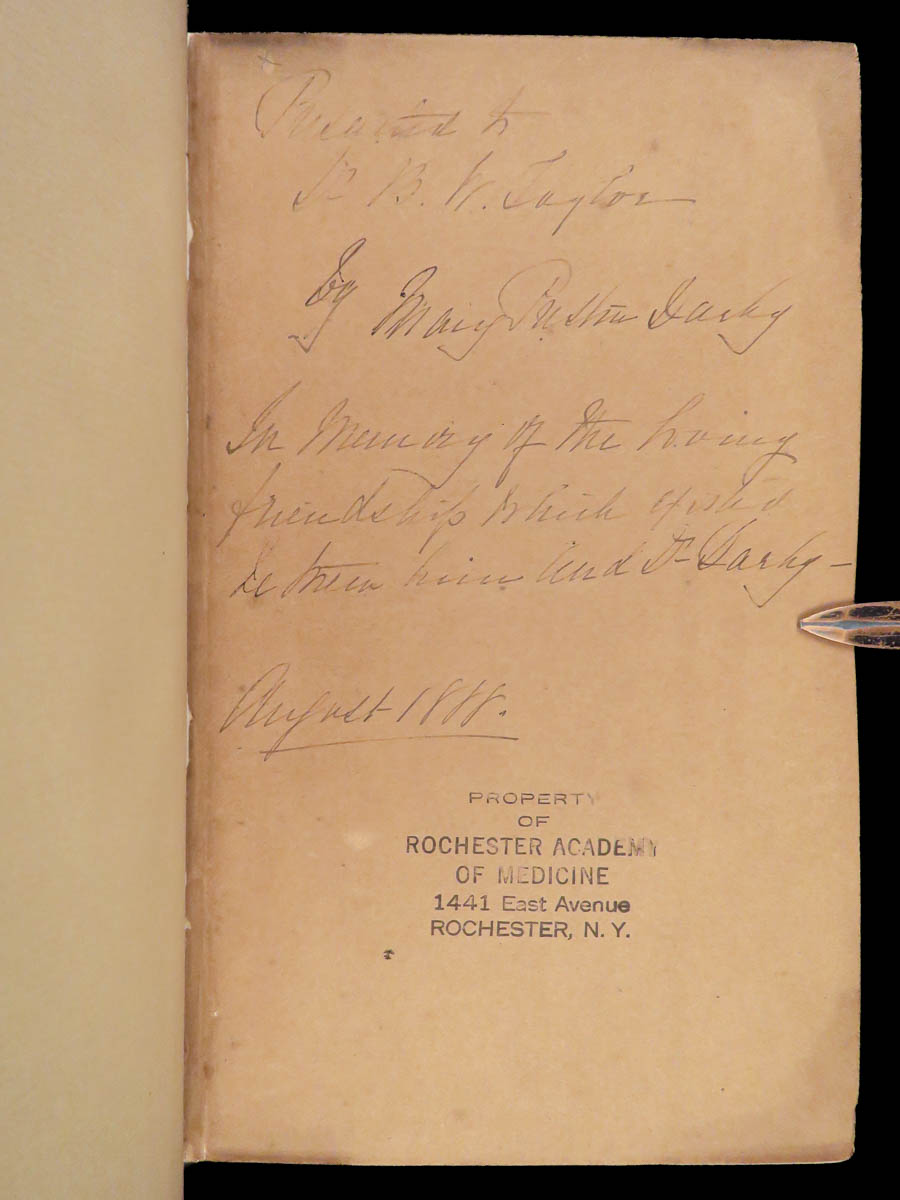 Presented to
Dr B. W. Taylor
by Mary Preston Darby
In Memory of the loving
friendship which existed
between him and Dr Darby —
August 1888.
PROPERTY
OF
ROCHESTER ACADEMY
OF MEDICINE
1441 East Avenue
ROCHESTER, N. Y.